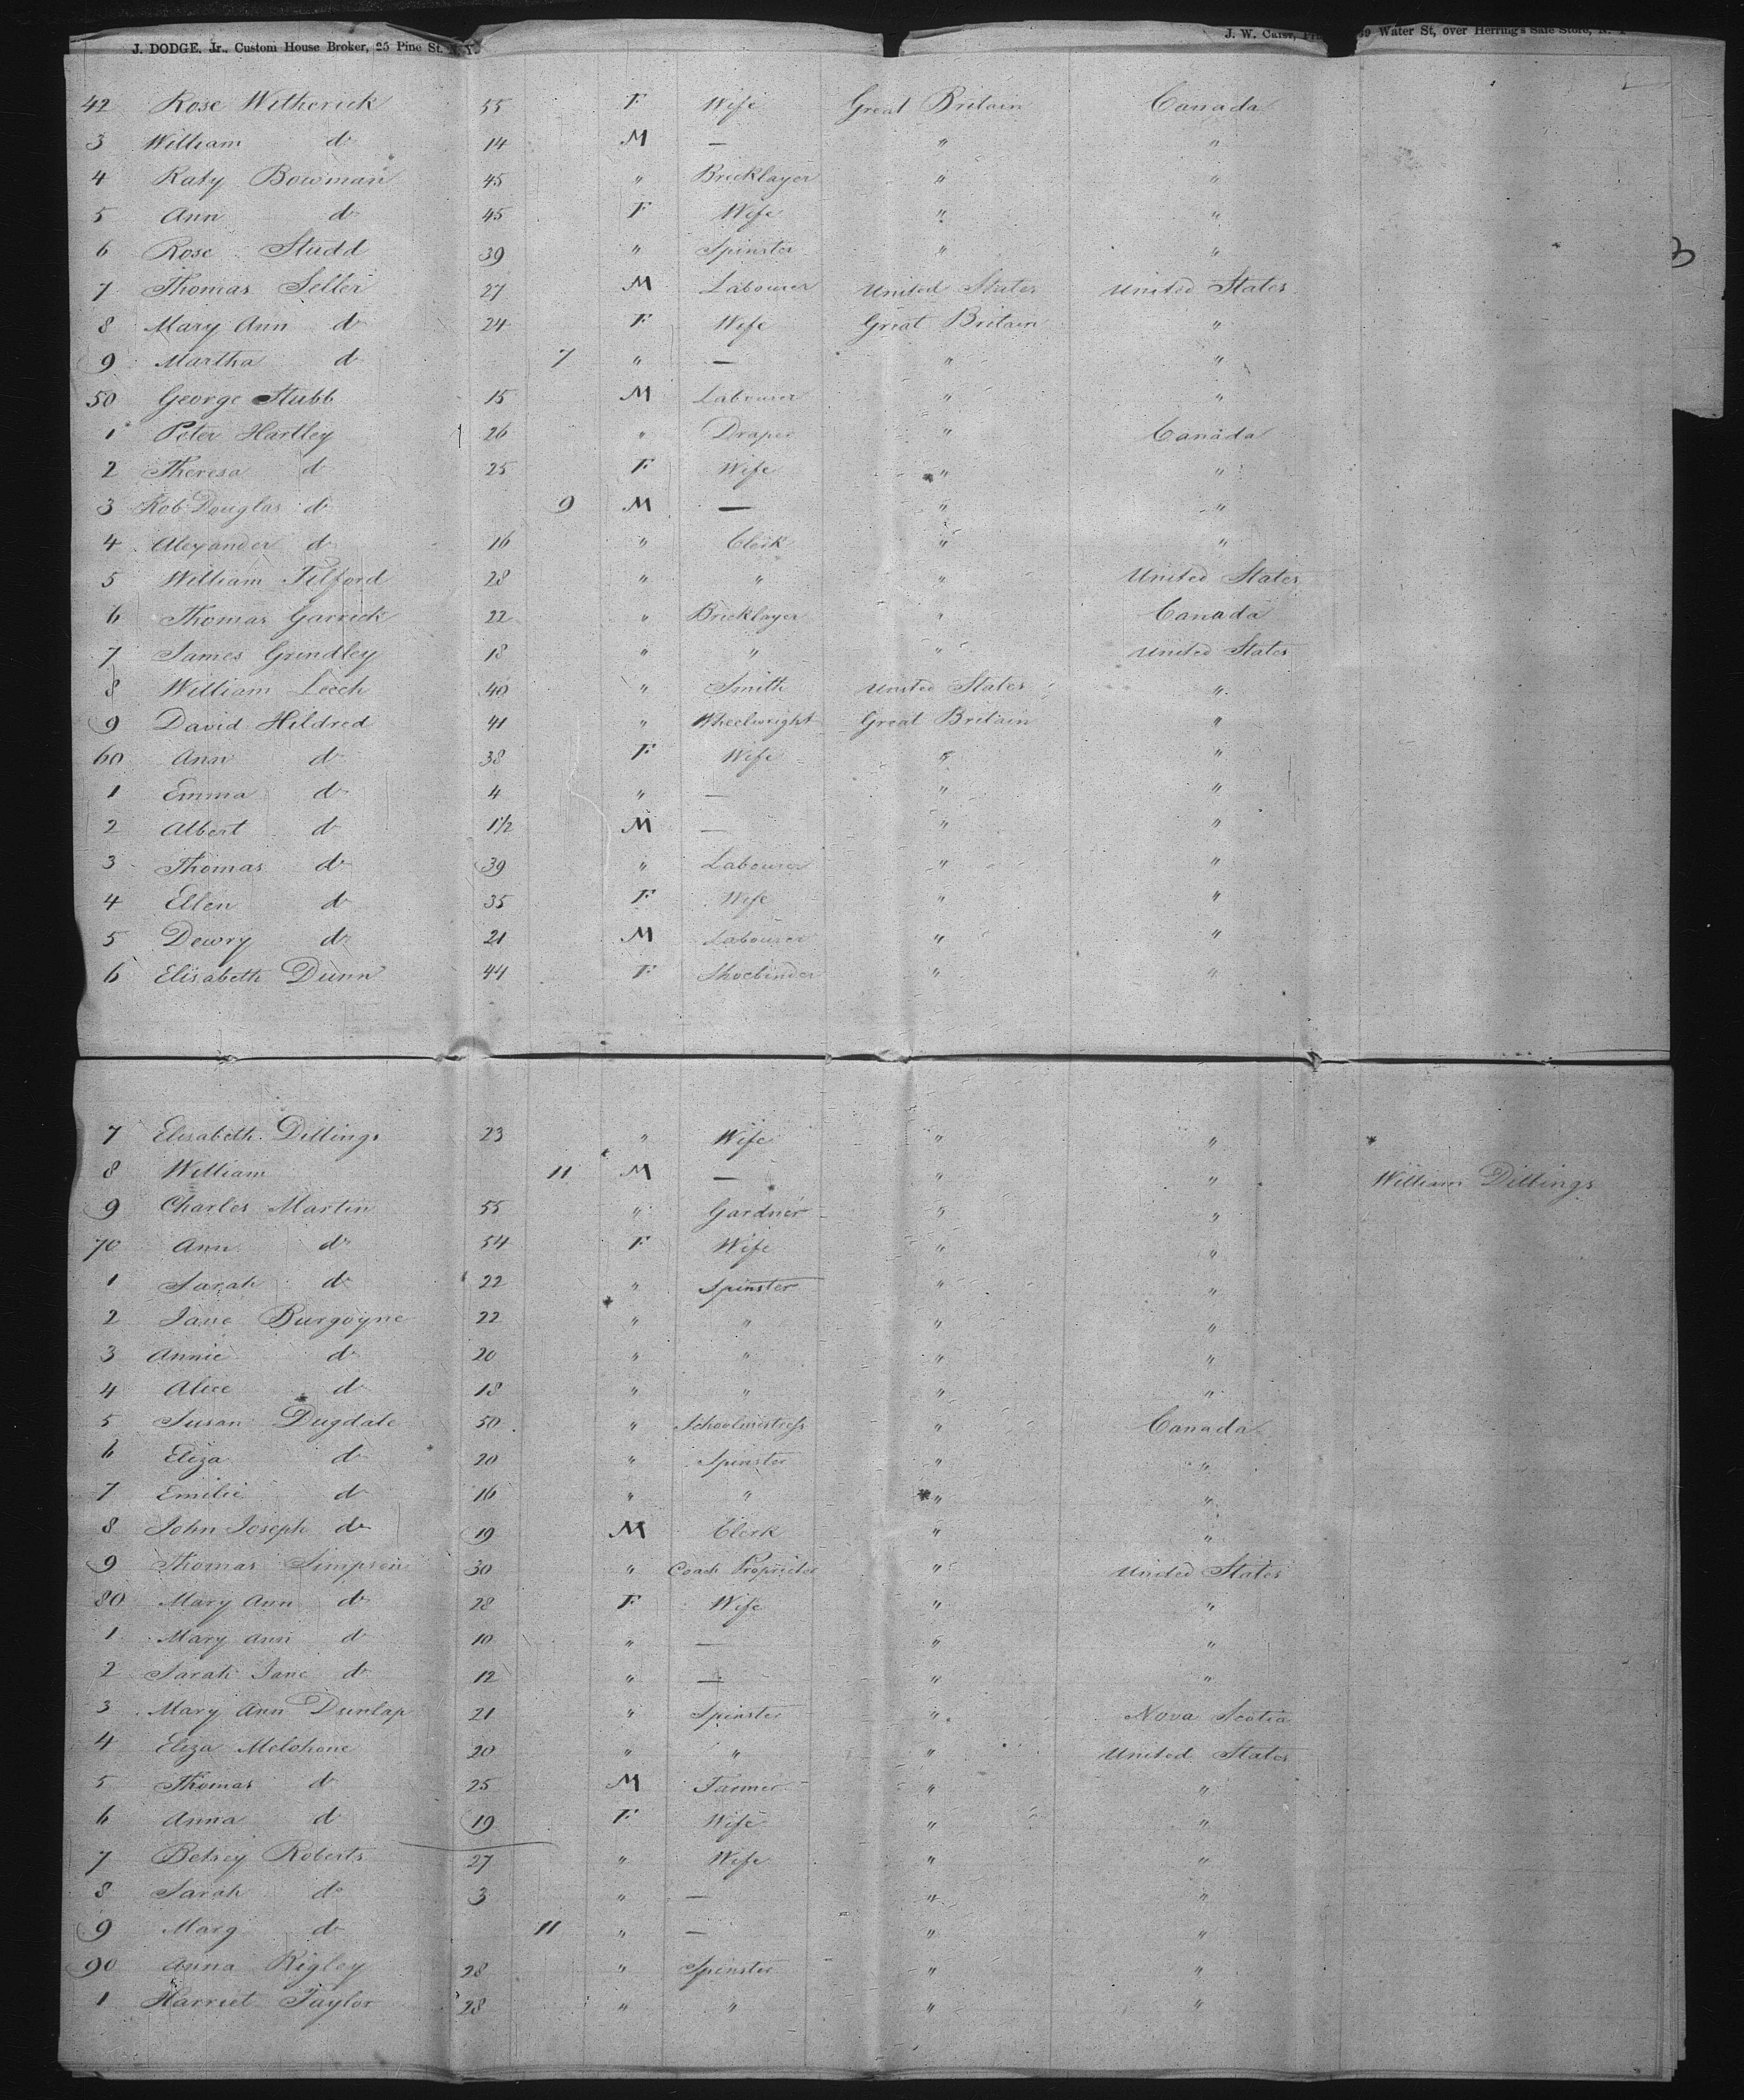 J. DODGE, Jr., Custom House Broker, 25 Pine St. N. Y. J. W. Water St, over Herring's Safe Store, N. Y
42 Rose Witherick 55 F Wife Great Britain Canada
3 William do 14 M — " "
4 Katy Bowman 45 " Bricklayer " "
5 Ann do 45 F Wife " "
6 Rose Studd 39 " Spinster " "
3
7 Thomas Seller 27 M Labourer United States United States
8 Mary Ann do 24 F Wife Great Britain "
9 Martha do 7 " — " "
50 George Stubb 15 M Labourer " "
1 Peter Hartley 26 " Draper " Canada
2 Theresa do 25 F Wife " "
3 Rob Douglas do 9 M — " "
4 Alexander do 16 " Clerk " "
5 William Telford 28 " " " United States
6 Thomas Garrick 22 " Bricklayer " Canada
7 James Grindley 18 " " " United States
8 William Leech 40 " Smith United States "
9 David Hildred 41 " Wheelwright Great Britain "
60 Ann do 38 F Wife " "
1 Emma do 4 " — " "
2 Albert do 1½ M — " "
3 Thomas do 39 " Labourer " "
4 Ellen do 35 F Wife " "
5 Dewry do 21 M Labourer " "
6 Elisabeth Dunn 44 F Shoebinder " "
7 Elisabeth Dillings 23 " Wife " "
8 William 11 M — " " William Dillings
9 Charles Martin 55 " Gardner " "
70 Ann do 54 F Wife " "
1 Sarah do 22 " Spinster " "
2 Jane Burgoyne 22 " " " "
3 Annie do 20 " " " "
4 Alice do 18 " " " "
5 Susan Dugdale 50 " Schoolmistress " Canada
6 Eliza do 20 " Spinster " "
7 Emilie do 16 " " " "
8 John Joseph do 19 M Clerk " "
9 Thomas Simpson 30 " Coach Proprietor " United States
80 Mary Ann do 28 F Wife " "
1 Mary Ann do 10 " — " "
2 Sarah Jane do 12 " — " "
3 Mary Ann Dunlap 21 " Spinster " Nova Scotia
4 Eliza 20 " " " United States
5 Thomas do 25 M Farmer " "
6 Anna do 19 F Wife " "
7 Betsey Roberts 27 " Wife " "
8 Sarah do 3 " — " "
9 Marg do 11 " — " "
90 Anna Rigley 28 " Spinster " "
1 Harriet Taylor 28 " " " "